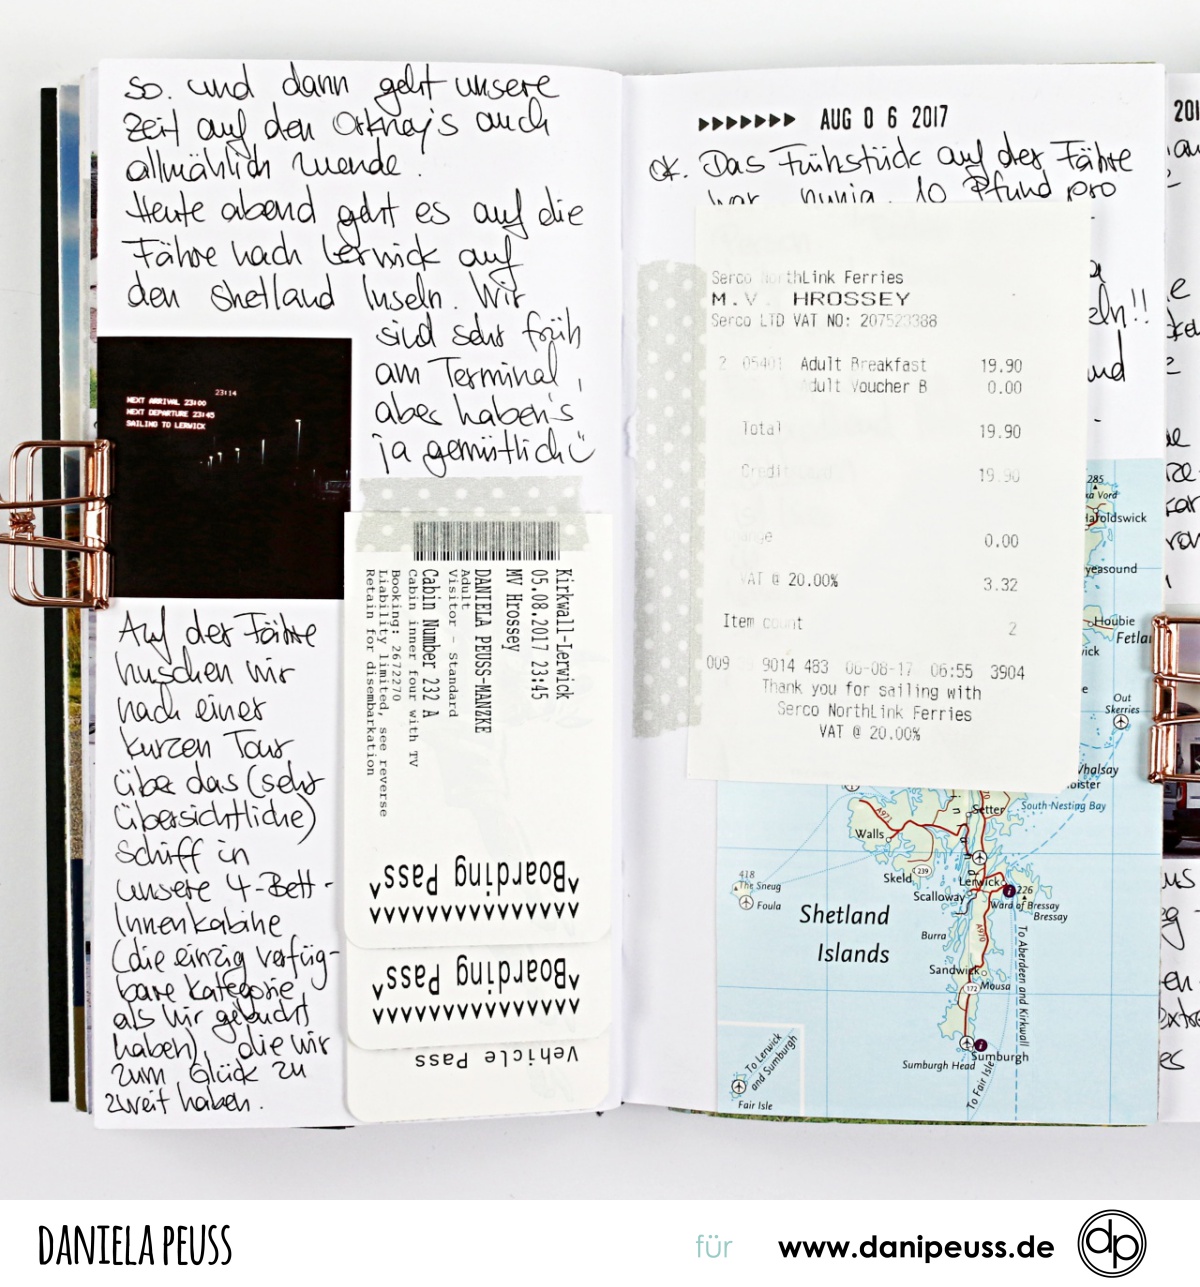 so. und dann geht unsere
Zeit auf den Orkney's auch
allmählich zuende.
Heute abend geht es auf die
Fähre nach Lerwick auf
den Shetland Inseln. Wir
sind sehr früh
am Terminal,
aber haben's
ja gemütlich
23:14
NEXT ARRIVAL 23:00
NEXT DEPARTURE 23:45
SAILING TO LERWICK
Auf der Fähre
huschen wir
nach einer
kurzen Tour
über das (sehr
übersichtliche)
Schiff in
unsere 4-Bett-
Innenkabine
(die einzig verfüg-
bare Kategorie
als wir gebucht
haben), die wir
zum Glück zu
zweit haben.
Kirkwall-Lerwick
05.08.2017 23:45
MV Hrossey
DANIELA PEUSS-MANZKE
Adult
Visitor - Standard
Cabin Number 232 A
Cabin inner four with TV
Booking: 2672270
Liability limited, see reverse
Retain for disembarkation
^Boarding Pass^
^Boarding Pass^
Vehicle Pass
AUG 06 2017
OK. Das Frühstück auf der Fähre
war 10 Pfund pro
eln!!
und
Serco NorthLink Ferries
M.V. HROSSEY
Serco LTD VAT NO: 207523388
2 05401 Adult Breakfast 19.90
Adult Voucher B 0.00
Total 19.90
Credit 19.90
0.00
VAT @ 20.00% 3.32
Item count 2
009 9014 483 06-08-17 06:55 3904
Thank you for sailing with
Serco NorthLink Ferries
VAT @ 20.00%
285
Vord
Haroldswick
Houbie
Out
Skerries
Whalsay
South Nesting Bay
Setter
A971
Walls
Skeld
239
418
The Sneug
Foula
Lerwick
226
Scalloway
Ward of Bressay
Bressay
Shetland
Islands
Burra
A970
Sandwick
172
Mousa
To Aberdeen and Kirkwall
Sumburgh
Sumburgh Head
To Fair Isle
To Lerwick
and Sumburgh
Fair Isle
DANIELA PEUSS
für
www.danipeuss.de
dp